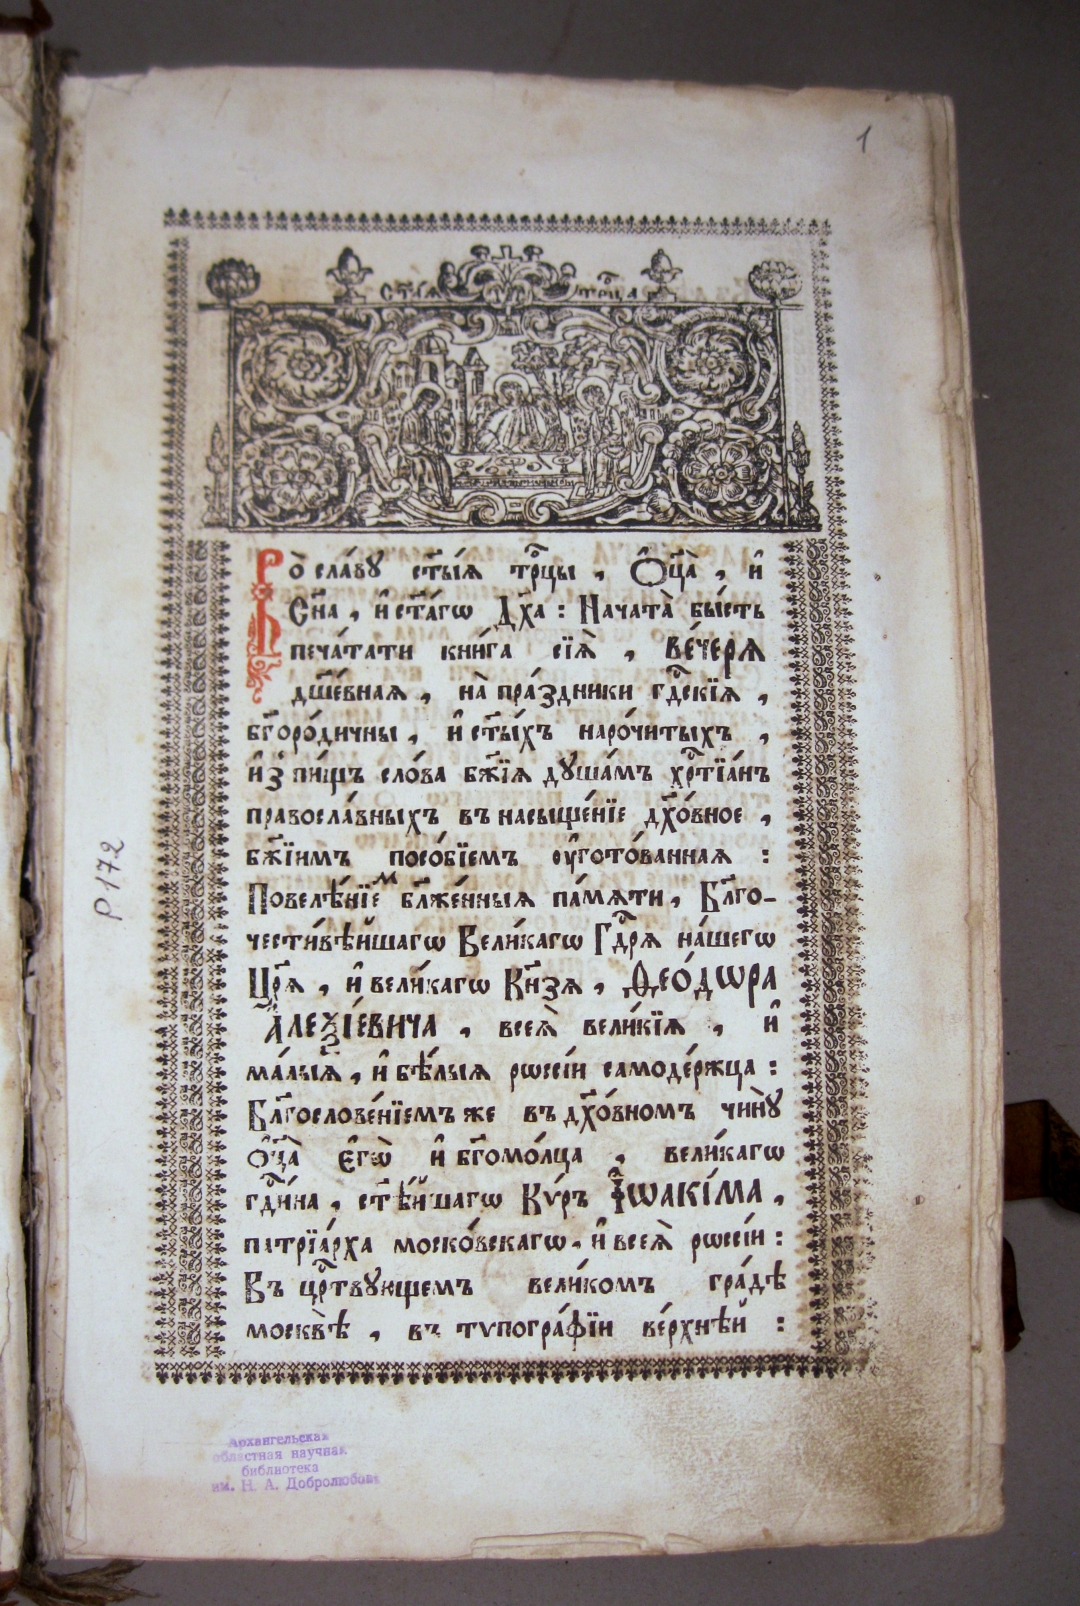 1
СТ҃АѦ ТРⷪ҇ЦА
Во̀ сла́вꙋ ст҃ы́ѧ трⷪ҇цы , Ѻ҆ц҃а̀ , и҆
Сн҃а , и҆ ст҃а́гѡ Дх҃а : Начата̀ бы́сть
печа́тати кни́га сїѧ̀ , ве́черѧ
дш҃е́внаѧ , на̀ пра́здники гдⷭ҇кїѧ ,
бг҃оро́дичны , и҆ ст҃ы́хъ наро́читыхъ ,
и҆з̾ пи́щъ сло́ва бж҃їѧ дꙋша́мъ хрⷭ҇тїа́нъ
правосла́вныхъ въ насыще́нїе дх҃о́вное ,
бж҃їимъ посо́бїемъ ᲂу҆гото́ваннаѧ :
Повелѣ́нїеⷨ бл҃же́нныѧ па́мѧти , Бл҃го-
чести́вѣйшагѡ Вели́кагѡ Гдⷭ҇рѧ на́шегѡ
Цр҃ѧ̀ , и҆ вели́кагѡ Кн҃зѧ , Ѳео́дѡра
А҆леѯі́евича , всеѧ̀ вели́кїѧ , и҆
ма́лыѧ , и҆ бѣ́лыѧ рѡссі́и самоде́ржца :
Бл҃гослове́нїемъ же въ дх҃о́вномъ чи́нꙋ
Ѻ҆ц҃а̀ є҆гѡ̀ и҆ бг҃омо́лца , вели́кагѡ
гдⷭ҇и́на , ст҃ѣ́йшагѡ Кѵ́ръ І҆ѡаки́ма ,
патрїа́рха моско́вскагѡ , и҆ всеѧ̀ рѡссі́и :
Въ црⷭ҇твꙋющемъ вели́комъ гра́дѣ
москвѣ̀ , въ тѵпогра́фїи ве́рхнѣй :
Р 172
Архангельская
областная научная
библиотека
им. Н. А. Добролюбова